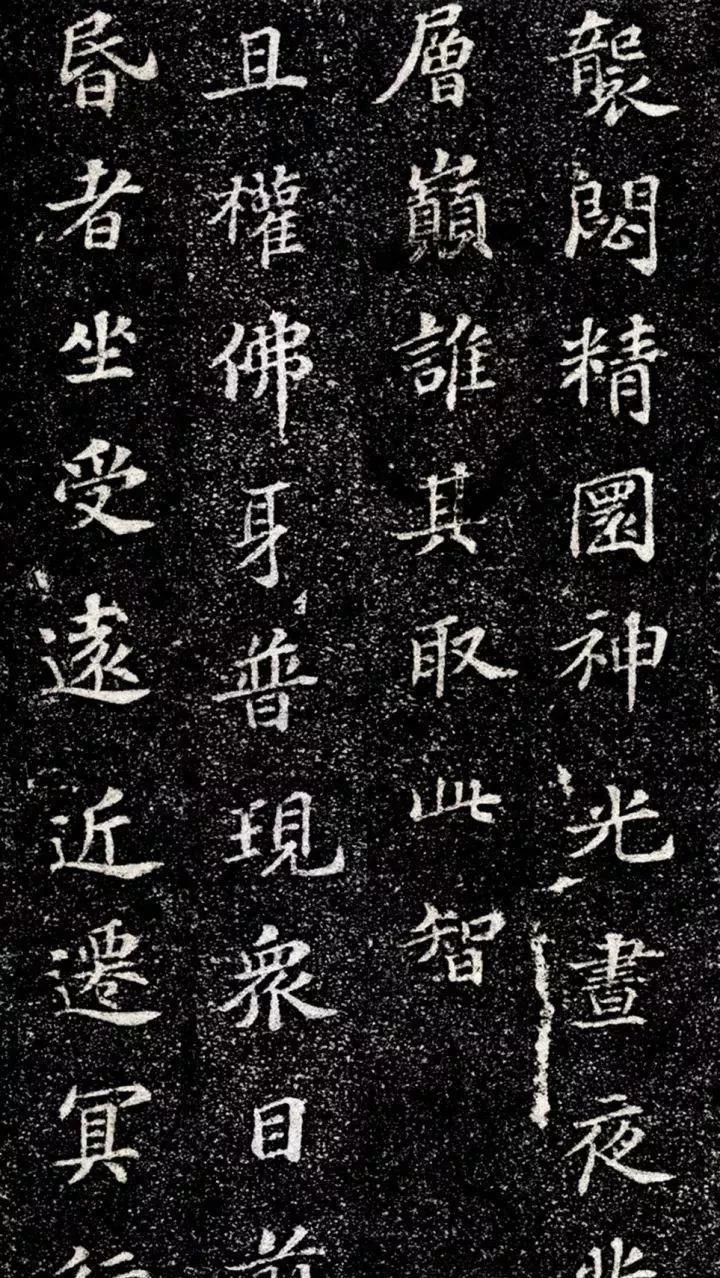 襲閟精圜神光晝夜
層巔誰其取此智
且權佛身普現眾目前
昏者坐受遠近遷冥行